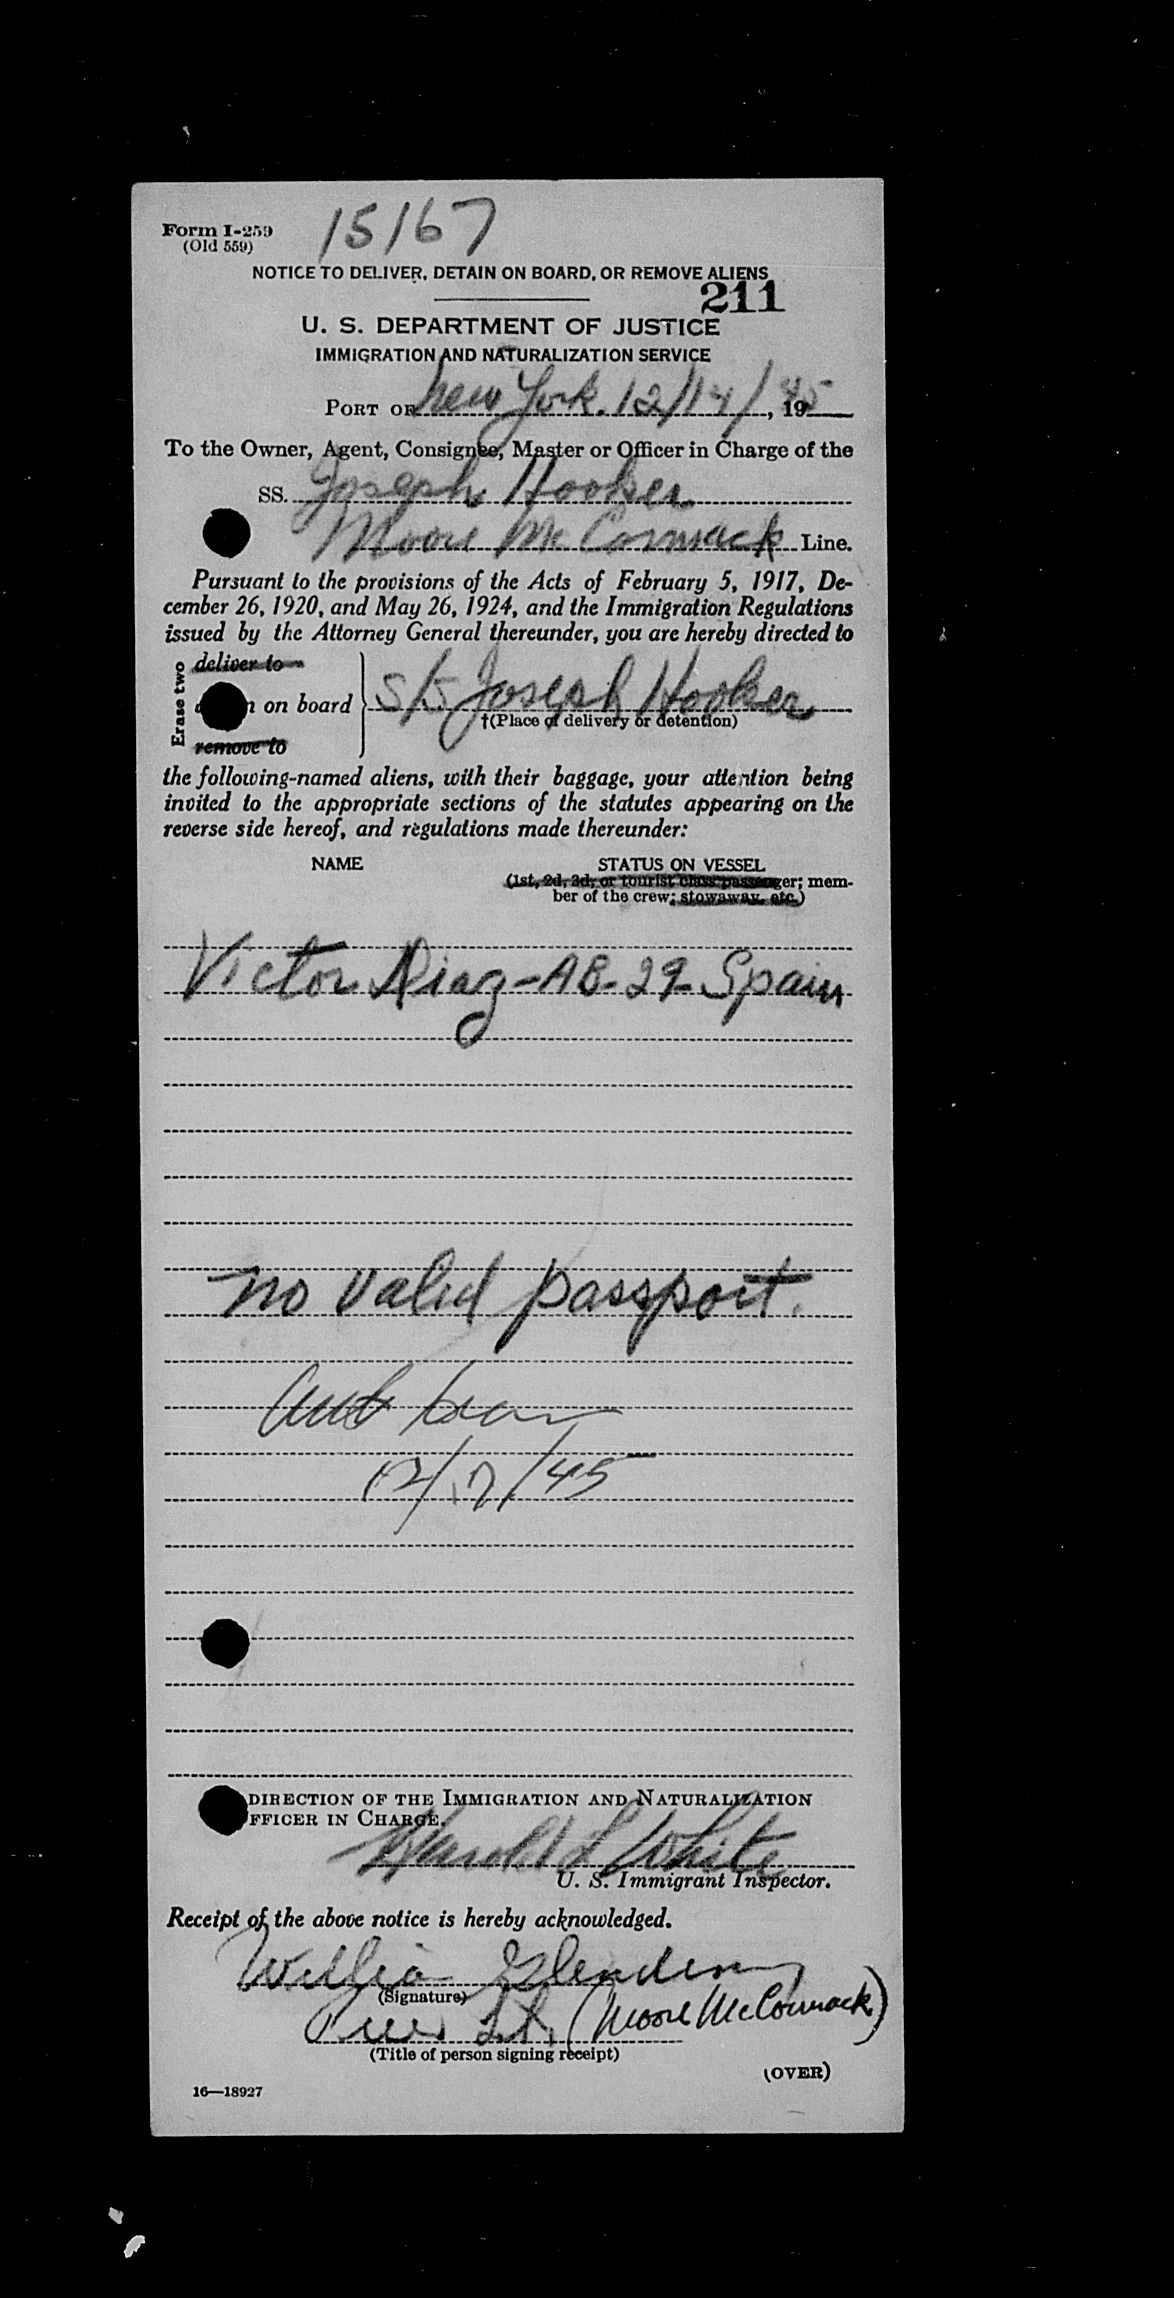 Form I-259
(Old 559)
15167
NOTICE TO DELIVER, DETAIN ON BOARD, OR REMOVE ALIENS
211
U. S. DEPARTMENT OF JUSTICE
IMMIGRATION AND NATURALIZATION SERVICE
PORT OF New York. 12/14/, 1945
To the Owner, Agent, Consignee, Master or Officer in Charge of the
SS. Joseph Hooker
Moore McCormack Line.
Pursuant to the provisions of the Acts of February 5, 1917, De-
cember 26, 1920, and May 26, 1924, and the Immigration Regulations
issued by the Attorney General thereunder, you are hereby directed to
Erase two
deliver to
n on board } S/S Joseph Hooker
†(Place of delivery or detention)
remove to
the following-named aliens, with their baggage, your attention being
invited to the appropriate sections of the statutes appearing on the
reverse side hereof, and regulations made thereunder:
NAME STATUS ON VESSEL
(1st, 2d, 3d, or tourist class passenger; mem-
ber of the crew; stowaway, etc.)
Victor Diaz - AB - 29 - Spain
no valid passport.
12/17/45
DIRECTION OF THE IMMIGRATION AND NATURALIZATION
FFICER IN CHARGE.
Harold L White
U. S. Immigrant Inspector.
Receipt of the above notice is hereby acknowledged.
(Signature)
(Moore McCormack)
(Title of person signing receipt)
(OVER)
16—18927